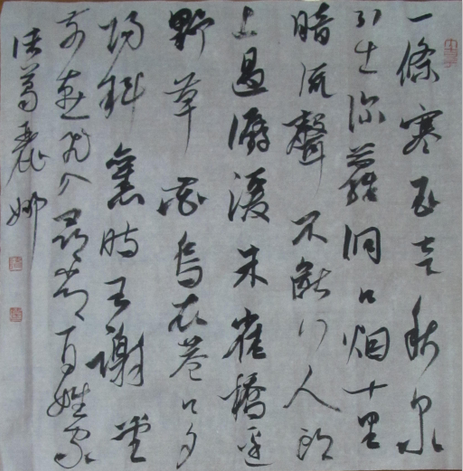 一條寒玉走秋泉
引出深蘿洞口烟十里
暗流聲不斷行人頭
上過潺湲朱雀橋邊
野草花烏衣巷口夕
陽斜舊時王謝堂
前燕飛入尋常百姓家
葛麗娜